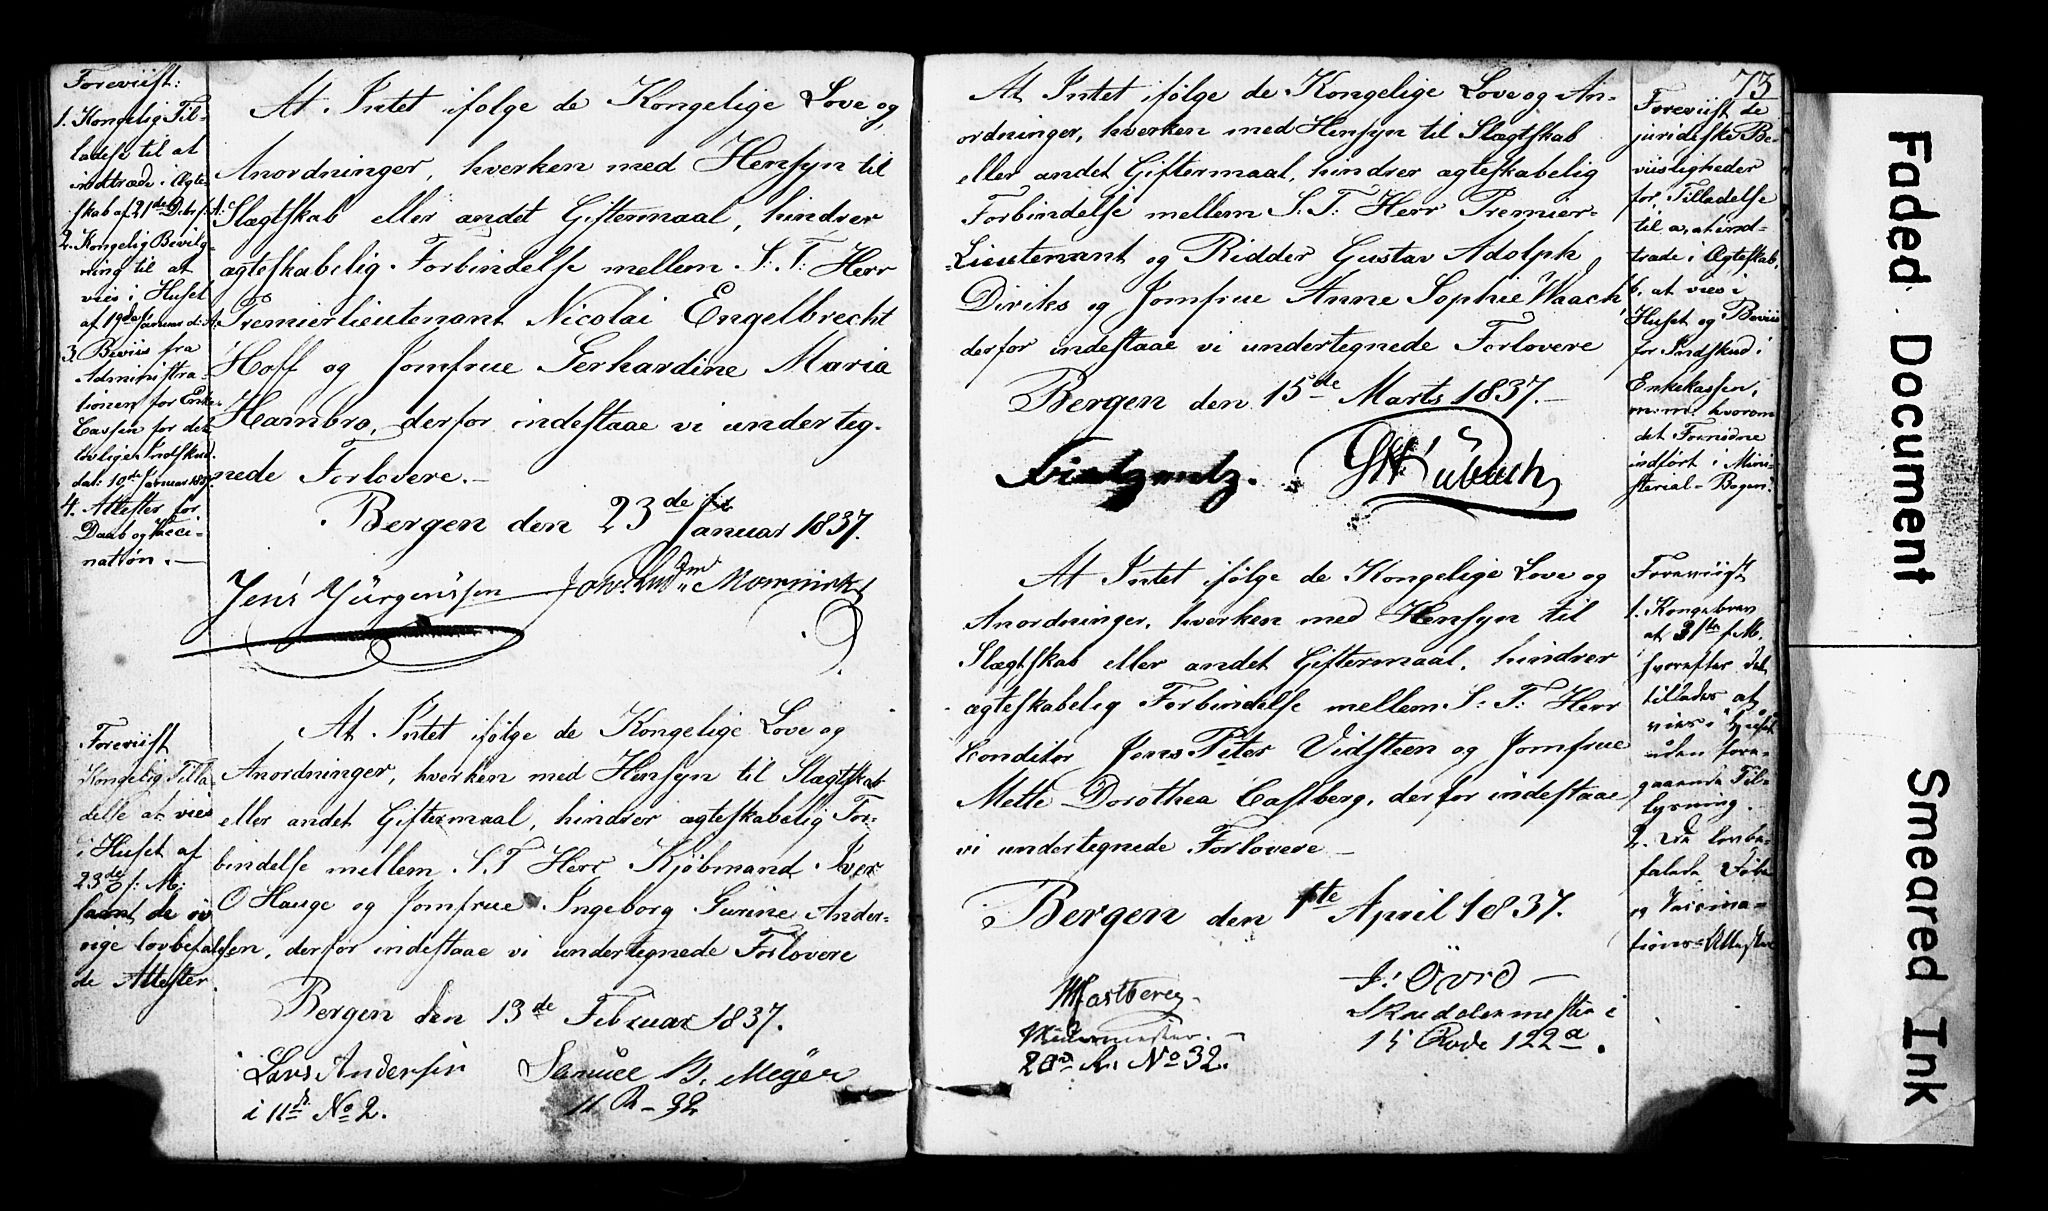 Foreviist:
1. Kongelig Til-
ladelse til at
indtræde i Ægte-
skab af 21de Debr f: A:
2. Kongelig Bevilg-
ning til at
vies i Huset
af 19de Januar d: A:
3. Beviis fra
Administra-
tionen for Enke-
Cassen for det
lovlige Indskud
dat: 19de Januar 1837.
4. Attester for
Daab og Vacci-
nation.
At Intet ifølge de Kongelige Love og
Anordninger, hverken med Hensyn til
Slægtskab eller andet Giftermaal, hindrer
ægteskabelig Forbindelse mellem S: T: Herr
Premierlieutenant Nicolai Engelbrecht
Hoff og Jomfrue Gerhardine Maria
Hambro, derfor indestaae vi underteg-
nede Forlovere.
Bergen den 23de Januar 1837.
Jens Jürgenssen Mowinckel
Foreviist
Kongelig Tilla-
delse at vies
i Huset af
23de f: M:
samt de øv
rige lovbefale-
de Attester.
At Intet ifølge de Kongelige Love og
Anordninger, hverken med Hensyn til Slægtskab
eller andet Giftermaal, hindrer ægteskabelig For-
bindelse mellem S. T Herr Kjøbmand Iver
O Hauge og Jomfrue Ingeborg Gurine Ander-
sen, derfor indestaae vi undertegnede Forlovere
Bergen den 13de Februar 1837.
Lars Andersen Samuel B. Meyer
i 11te R. No 2. 11 R - 32
73
At Intet ifølge de Kongelige Love og An-
ordninger, hverken med Hensyn til Slægtskab
eller andet Giftermaal, hindrer ægteskabelig
Forbindelse mellem S. T: Herr Premier-
Lieutenant og Ridder Gustav Adolph
Diriks og Jomfrue Anne Sophie Waach,
derfor indestaae vi undertegnede Forlovere
Bergen den 15de Marts 1837.
Foreviist de
juridiske Be-
viisligheder
for, Tilladelse
til a, at ind-
træde i Ægteskab,
b, at vies i
Huset og Beviis
for Indskud i
Enkekassen,
m: m: hvorom
det Fornødne
indført i Mini-
sterial-Bogen.
At Intet ifølge de Kongelige Love og
Anordninger, hverken med Hensyn til
Slægtskab eller andet Giftermaal, hindrer
ægteskabelig Forbindelse mellem S. T: Herr
Conditor Jens Peter Vidsteen og Jomfrue
Mette Dorothea Castberg, derfor indestaae
vi undertegnede Forlovere
Bergen den 1ste April 1837.
Castberg J. Øvre
i
20de R. No 32. 15 Rode 122a.
Foreviist
1. Kongebrev
af 31te f. M.
hvorefter det
tillades at
vies i Huset
uden fore-
gaaende Til-
lysning.
2. De lovbe-
falede Døbe
og Vaccina-
tions-Attester
Faded Document
Smeared Ink